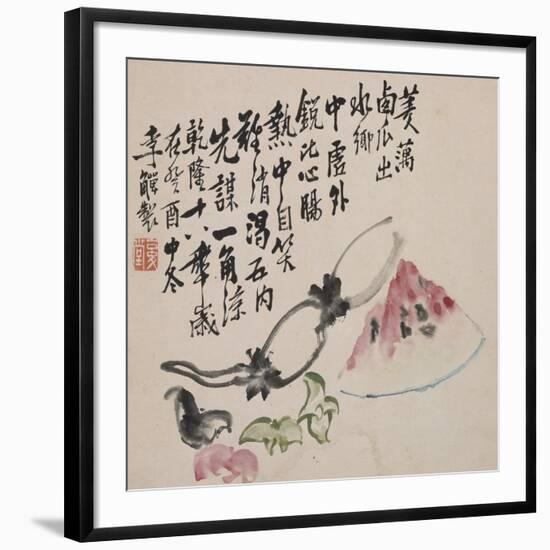 菱蕅
卤瓜出
水鄉
中虛外
銳比心腸
熱中自笑
難消渴五內
先謀一角涼
乾隆十八年歲
在癸酉中冬
李觶製